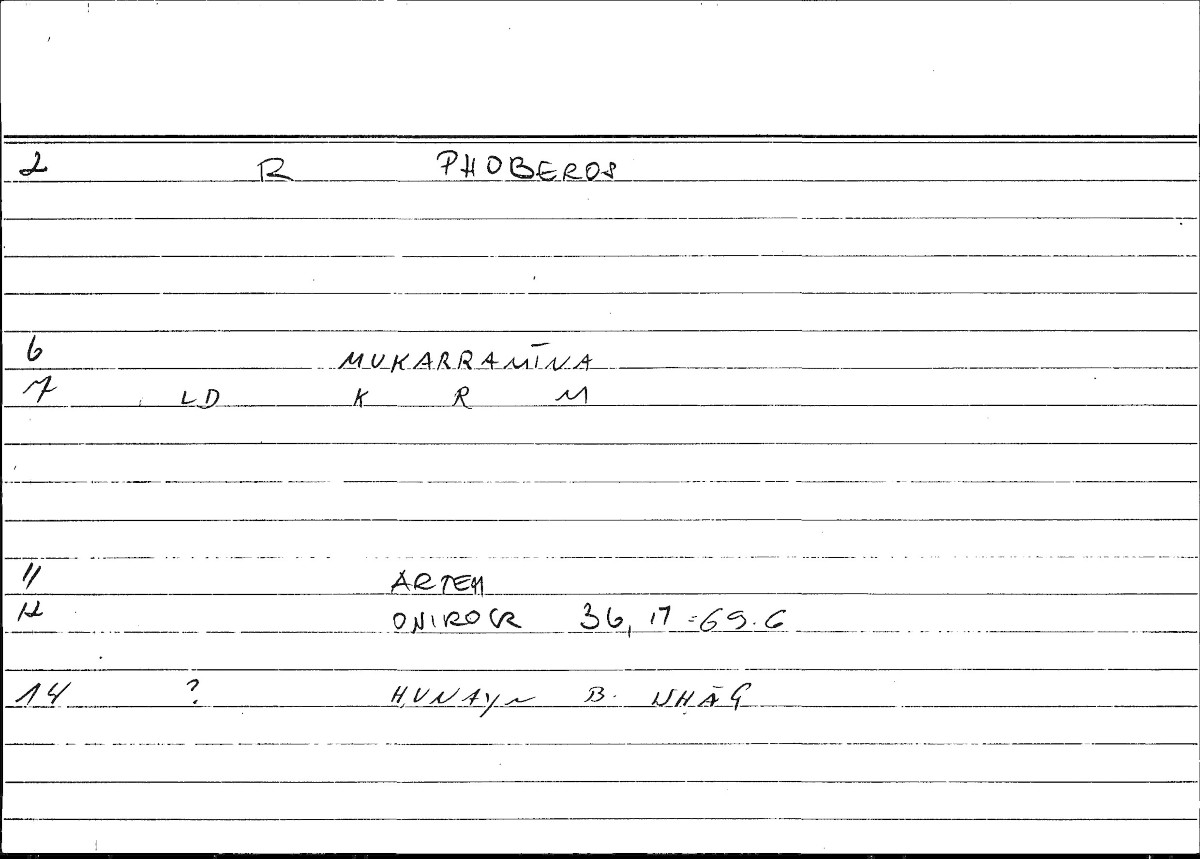 2 R PHOBEROS
6 MUKARRAMĪNA
7 LD K R M
11 ARTEM
12 ONIROCR 36, 17 = 69.6
14 ? ḤUNAYN B. ISḤĀQ